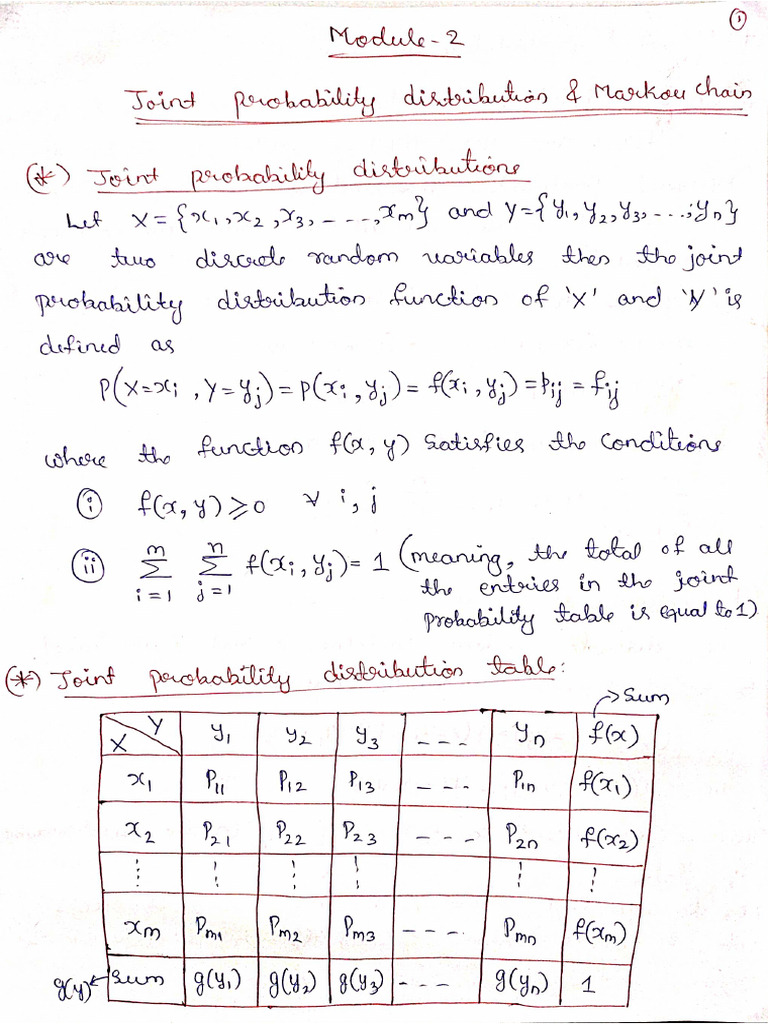 ①
Module-2
Joint probability distribution & Markov Chain
(*) Joint probability distributions
Let X={x₁,x₂,x₃,-...,xₘ} and Y={y₁,y₂,y₃,...,yₙ}
are two discrete random variables then the joint
probability distribution function of 'X' and 'Y' is
defined as
P(X=xᵢ, Y=yⱼ) = P(xᵢ,yⱼ) = f(xᵢ,yⱼ) = pᵢⱼ = fᵢⱼ
where the function f(x,y) satisfies the conditions
ⓘ f(x,y) ≥ 0 ∀ i,j
(ii) ∑ᵢ₌₁ᵐ ∑ⱼ₌₁ⁿ f(xᵢ,yⱼ) = 1 (meaning, the total of all
the entries in the joint
probability table is equal to 1)
(*) Joint probability distribution table:
→ Sum
X Y y₁ y₂ y₃ ---- yₙ f(x)
x₁ P₁₁ P₁₂ P₁₃ ---- P₁ₙ f(x₁)
x₂ P₂₁ P₂₂ P₂₃ ---- P₂ₙ f(x₂)
⋮ ⋮ ⋮ ⋮ ⋮ ⋮
xₘ Pₘ₁ Pₘ₂ Pₘ₃ ---- Pₘₙ f(xₘ)
g(y) ← Sum g(y₁) g(y₂) g(y₃) ---- g(yₙ) 1